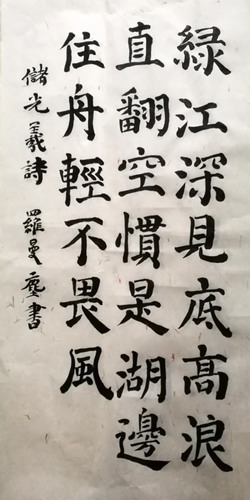 緑江深見底高浪
直翻空慣是湖邊
住舟輕不畏風
儲光羲詩 羅曼塵書